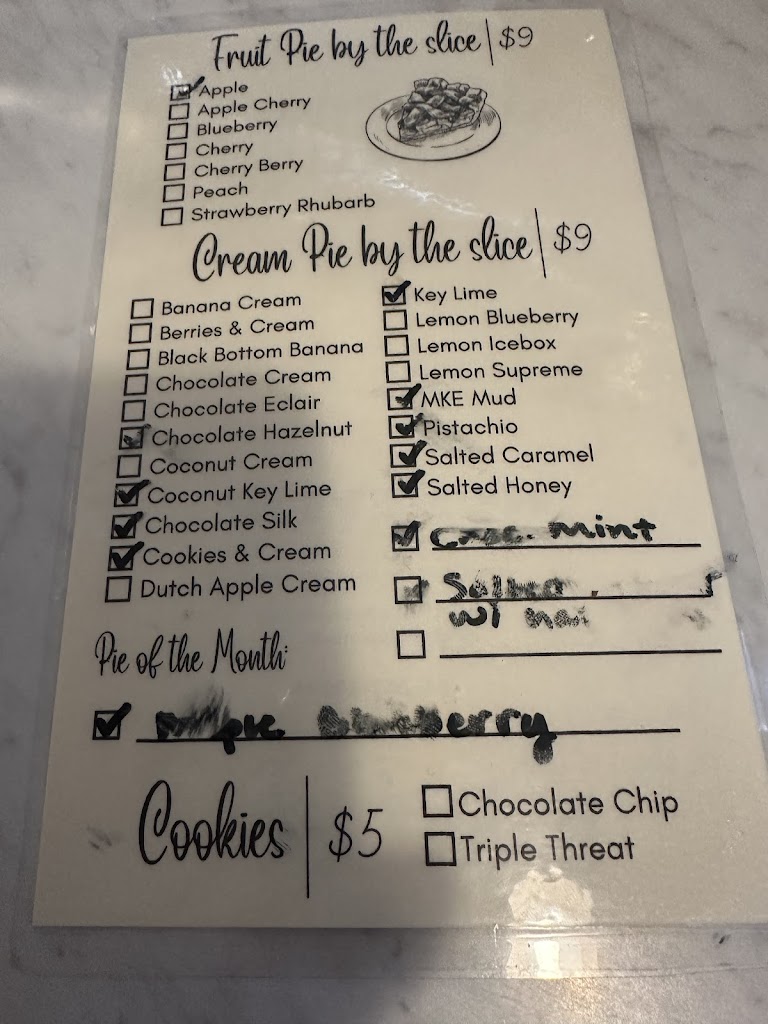 Fruit Pie by the slice | $9
Apple
Apple Cherry
Blueberry
Cherry
Cherry Berry
Peach
Strawberry Rhubarb
Cream Pie by the slice | $9
Banana Cream
Berries & Cream
Black Bottom Banana
Chocolate Cream
Chocolate Eclair
Chocolate Hazelnut
Coconut Cream
Coconut Key Lime
Chocolate Silk
Cookies & Cream
Dutch Apple Cream
Key Lime
Lemon Blueberry
Lemon Icebox
Lemon Supreme
MKE Mud
Pistachio
Salted Caramel
Salted Honey
mint
w/
Pie of the Month:
Cookies | $5
Chocolate Chip
Triple Threat